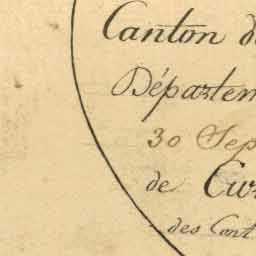 Canton d
Départem
30 Sep
de Cur
des Cant